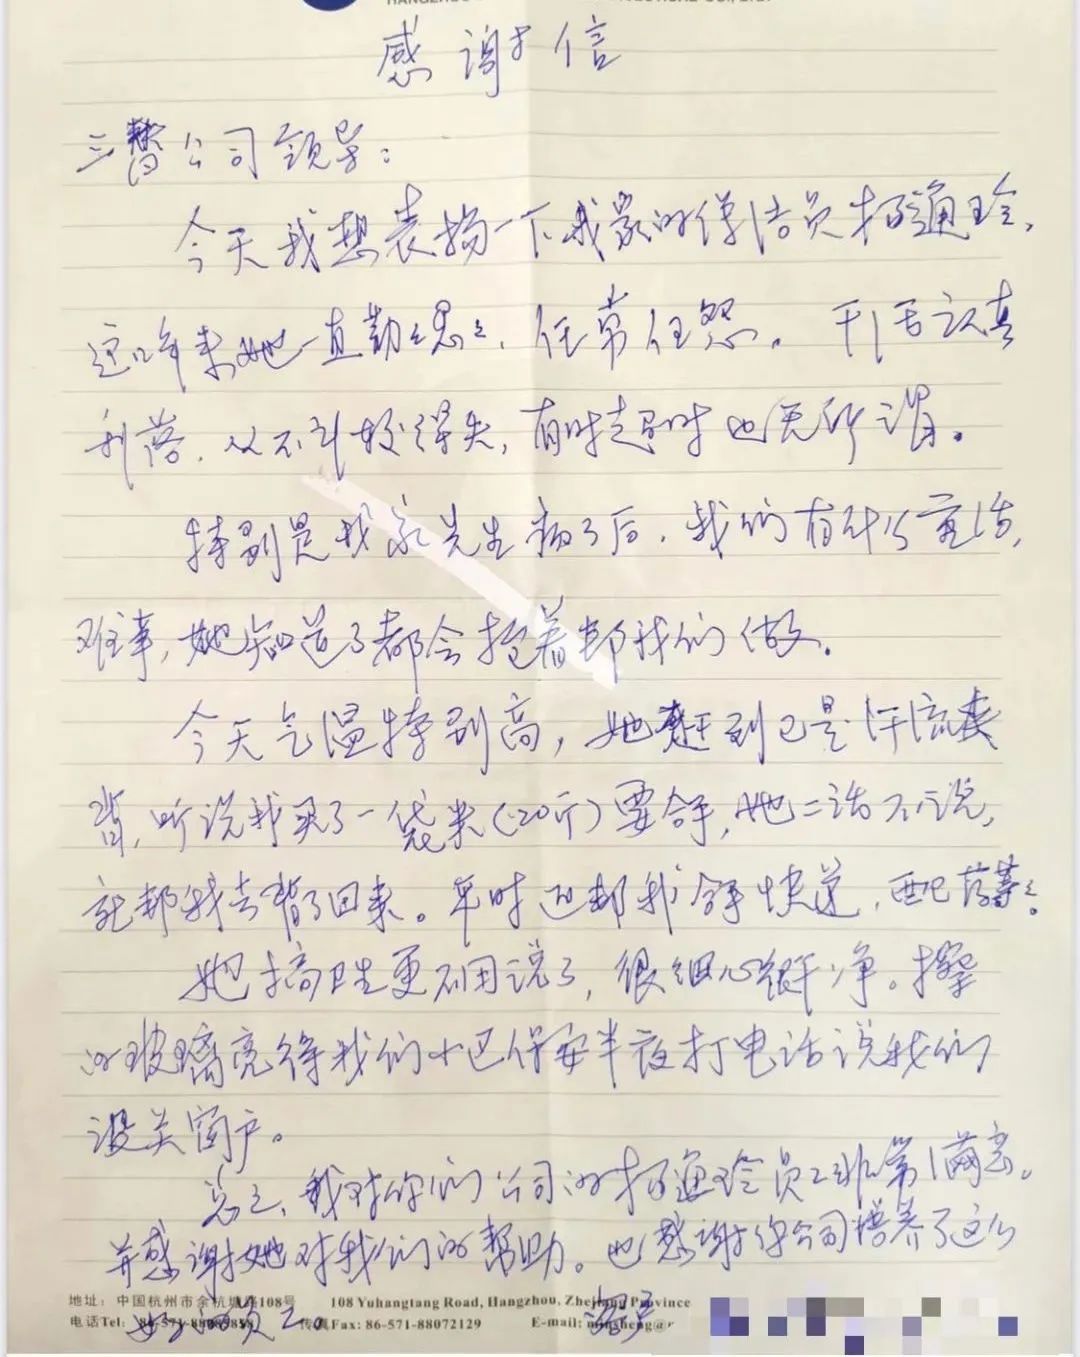 感谢信
三替公司领导：
今天我想表扬一下我家的保洁员杨通玲，
这几年来她一直勤勤恳恳、任劳任怨。干活认真
利落、从不计较得失，有时超时也无所谓。
特别是我家先生病了后，我们有什么重活，
难事，她知道了都会抢着帮我们做。
今天气温特别高，她赶到已是汗流夹
背，听说我买了一袋米（20斤）要拿，她二话不说，
就帮我去背了回来。平时还帮我拿快递，配药等等。
她搞卫生更不用说了，很细心很干净。擦
的玻璃亮得我们小区保安半夜打电话说我们
没关窗户。
总之，我对你们公司的杨通玲员工非常满意。
并感谢她对我们的帮助。也感谢你公司培养了这么
地址：中国杭州市余杭塘路108号 108 Yuhangtang Road, Hangzhou, Zhejiang Province
好的员工。
电话Tel: 传真Fax: 86-571-88072129 E-mail: